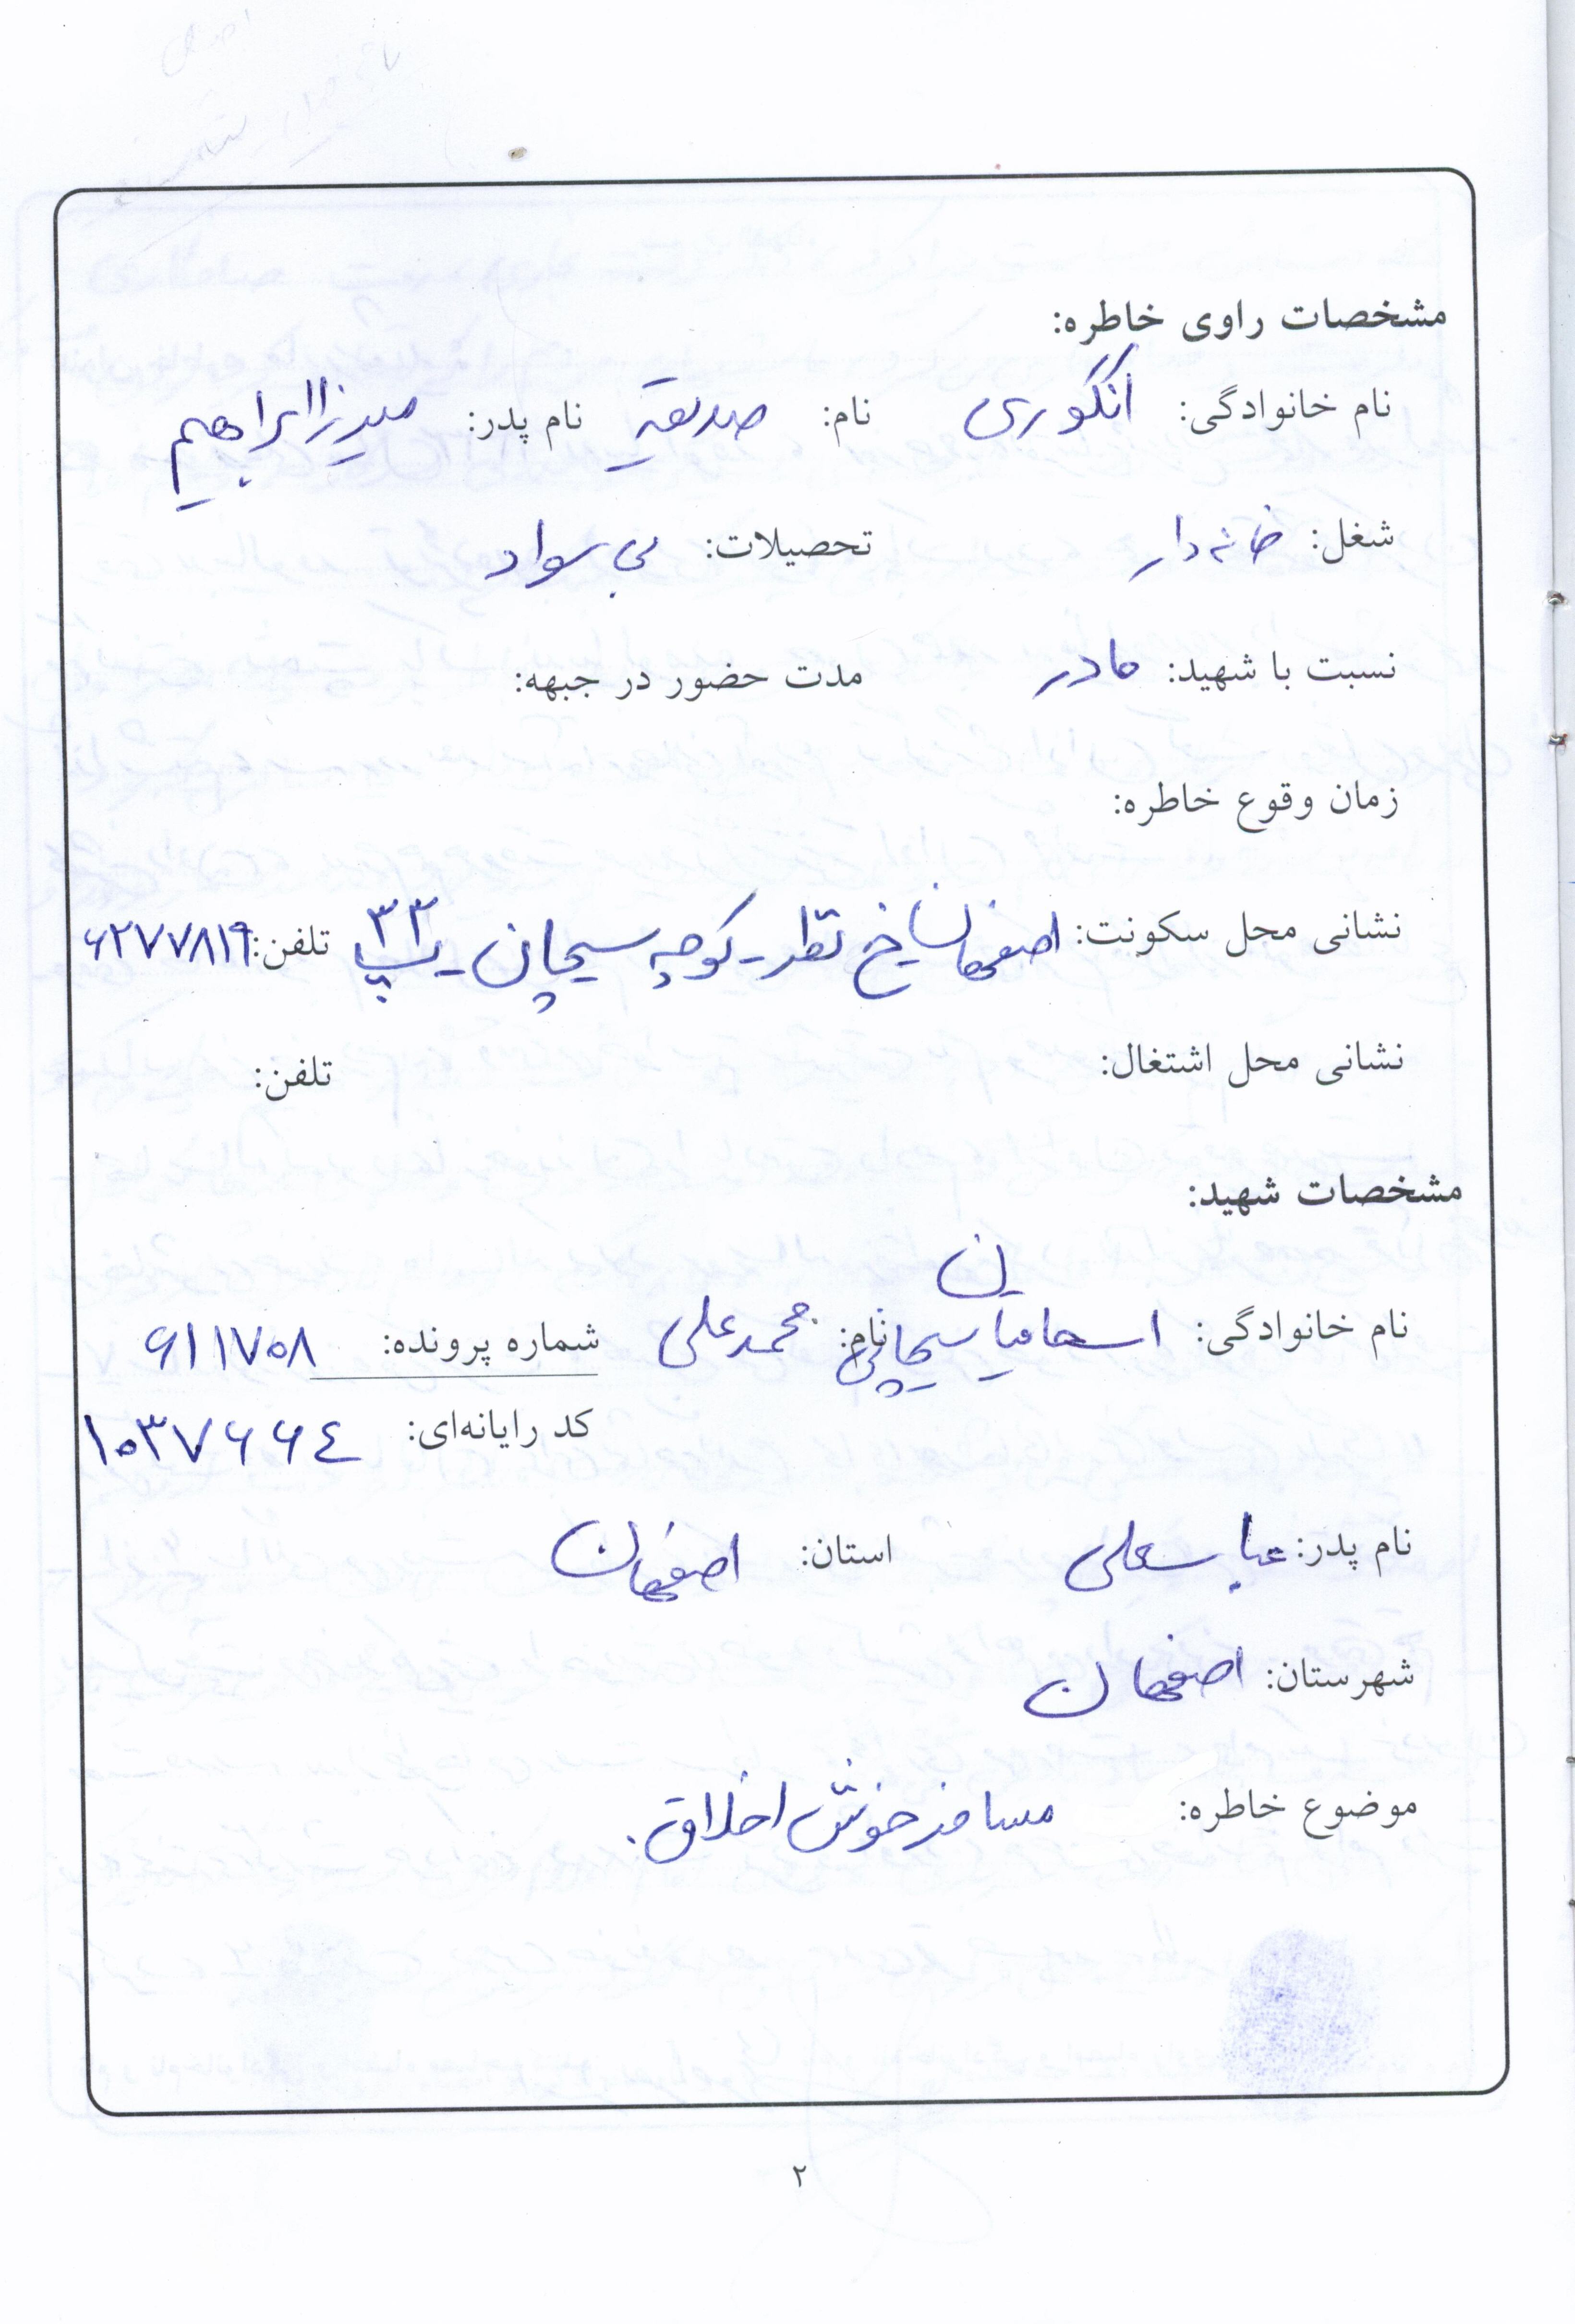 مشخصات راوی خاطره:
نام خانوادگی: انگوری نام: صدیقه نام پدر: میرزا ابراهیم
شغل: خانه دار تحصیلات: بی سواد
نسبت با شهید: مادر مدت حضور در جبهه:
زمان وقوع خاطره:
نشانی محل سکونت: اصفهان خ نظر - کوچه سیچان - پ ۳۳ تلفن: ۶۲۷۷۸۱۹
نشانی محل اشتغال: تلفن:
مشخصات شهید:
نام خانوادگی: سیچانی نام: محمدعلی شماره پرونده: ۶۱۱۷۰۸
کد رایانه‌ای: ۱۰۳۷۶۶۴
نام پدر: عباسعلی استان: اصفهان
شهرستان: اصفهان
موضوع خاطره: مسافر خوش اخلاق.
۲